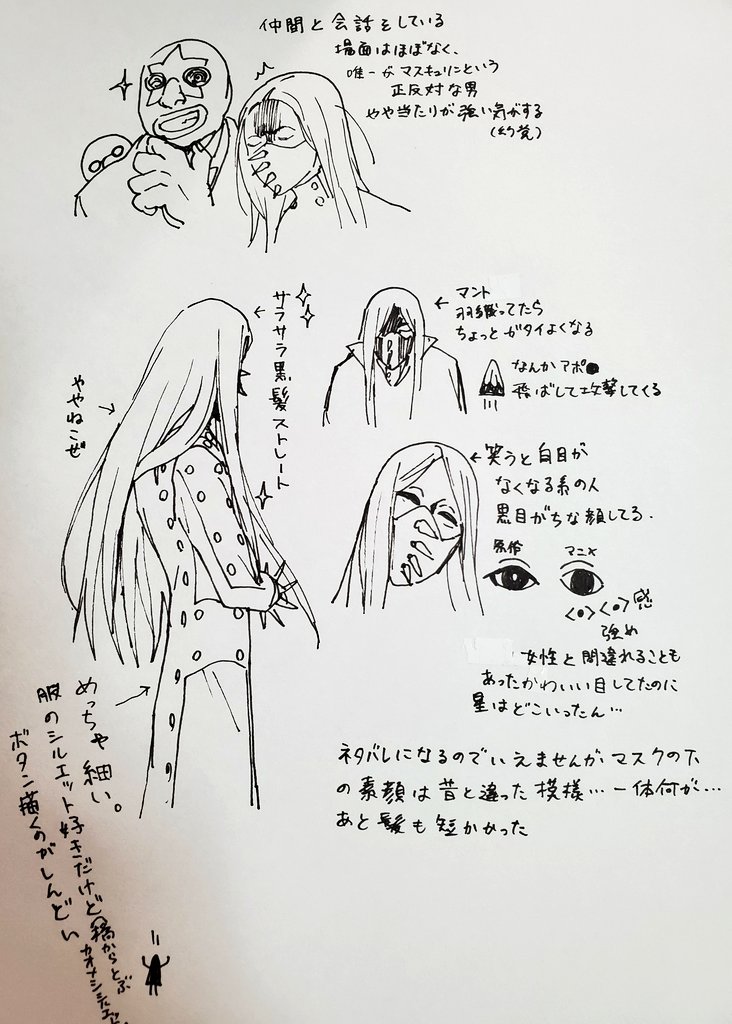 仲間と会話をしている
場面はほぼなく、
唯一がマスキュリンという
正反対な男
やや当たりが強い気がする
(幻覚)
サラサラ黒髪ストレート
ややねこぜ
マント
羽織ってたら
ちょっとガタイよくなる
なんかアポ
飛ばして攻撃してくる
笑うと白目が
なくなる系の人
黒目がちな顔してる.
原作
アニメ
<●><●>感
強め
女性と間違れることも
あったかわいい目してたのに
星はどこいったん…
ネタバレになるのでいえませんが、マスクの下
の素顔は昔と違った模様…一体何が…
あと髪も短かかった
めっちゃ細い。
服のシルエット好きだけど
ボタン描くのがしんどい
からとぶ
カオナシシルエット